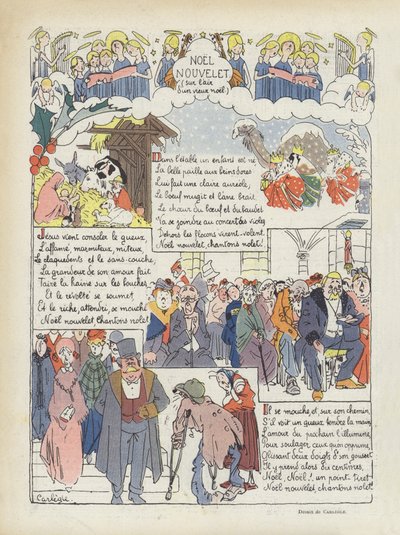 NOËL
NOUVELET
(sur l'air
d'un vieux noël)
Dans l'étable un enfant est né
La belle paille aux brins dorés
Lui fait une claire auréole,
Le bœuf mugit et l'âne brait
Le chœur du bœuf et du baudet
Va se joindre au concert des violes
Dehors les flocons virent, volent.
Noël nouvelet, chantons nolet!
Jésus vient consoler le gueux,
L'affamé, marmiteux, miteux,
Le claquedents et le sans-couche,
La grandeur de son amour fait
Taire la haine sur les bouches,
Et le révolté se soumet,
Et le riche, attendri, se mouche
Noël nouvelet, chantons nolet
Il se mouche, et, sur son chemin,
S'il voit un gueux tendre la main
L'amour du prochain l'illumine,
Pour soulager ceux qu'on opprime,
Glissant deux doigts d'son gousset
Il y prend alors dix centimes,
Noël, Noël! un point. Tiret
Noël nouvelet, chantons nolet!
Carlègle.
Dessin de CARLÈGLE.